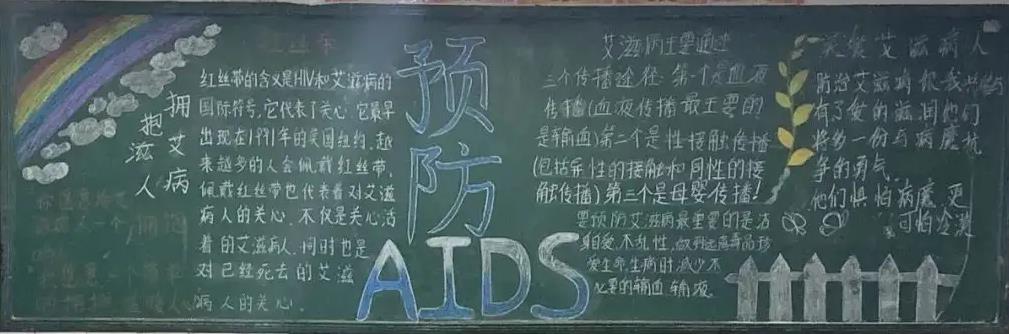 拥抱艾滋病人
红丝带的含义是HIV和艾滋病的
国际符号,它代表了关心,它最早
出现在1991年的美国纽约,越
来越多的人会佩戴红丝带,
佩戴红丝带也代表着对艾滋
病人的关心,不仅是关心活
着的艾滋病人,同时也是
对已经死去的艾滋
病人的关心.
预防
AIDS
艾滋病主要通途
三个传播途径:第一个是血液
传播(血液传播最主要的
是输血)第二个是性接触传播
(包括异性的接触和同性的接
触传播)第三个是母婴传播!
要预防艾滋病最重要的是洁
身自爱,不乱性,做到远离毒品珍
爱生命,生病时减少不
必要的输血、输液.
艾滋病人
防治艾滋病你我共参与
有了爱的滋润他们
将多一份与病魔抗
争的勇气,
他们惧怕病魔,更
可怕冷漠